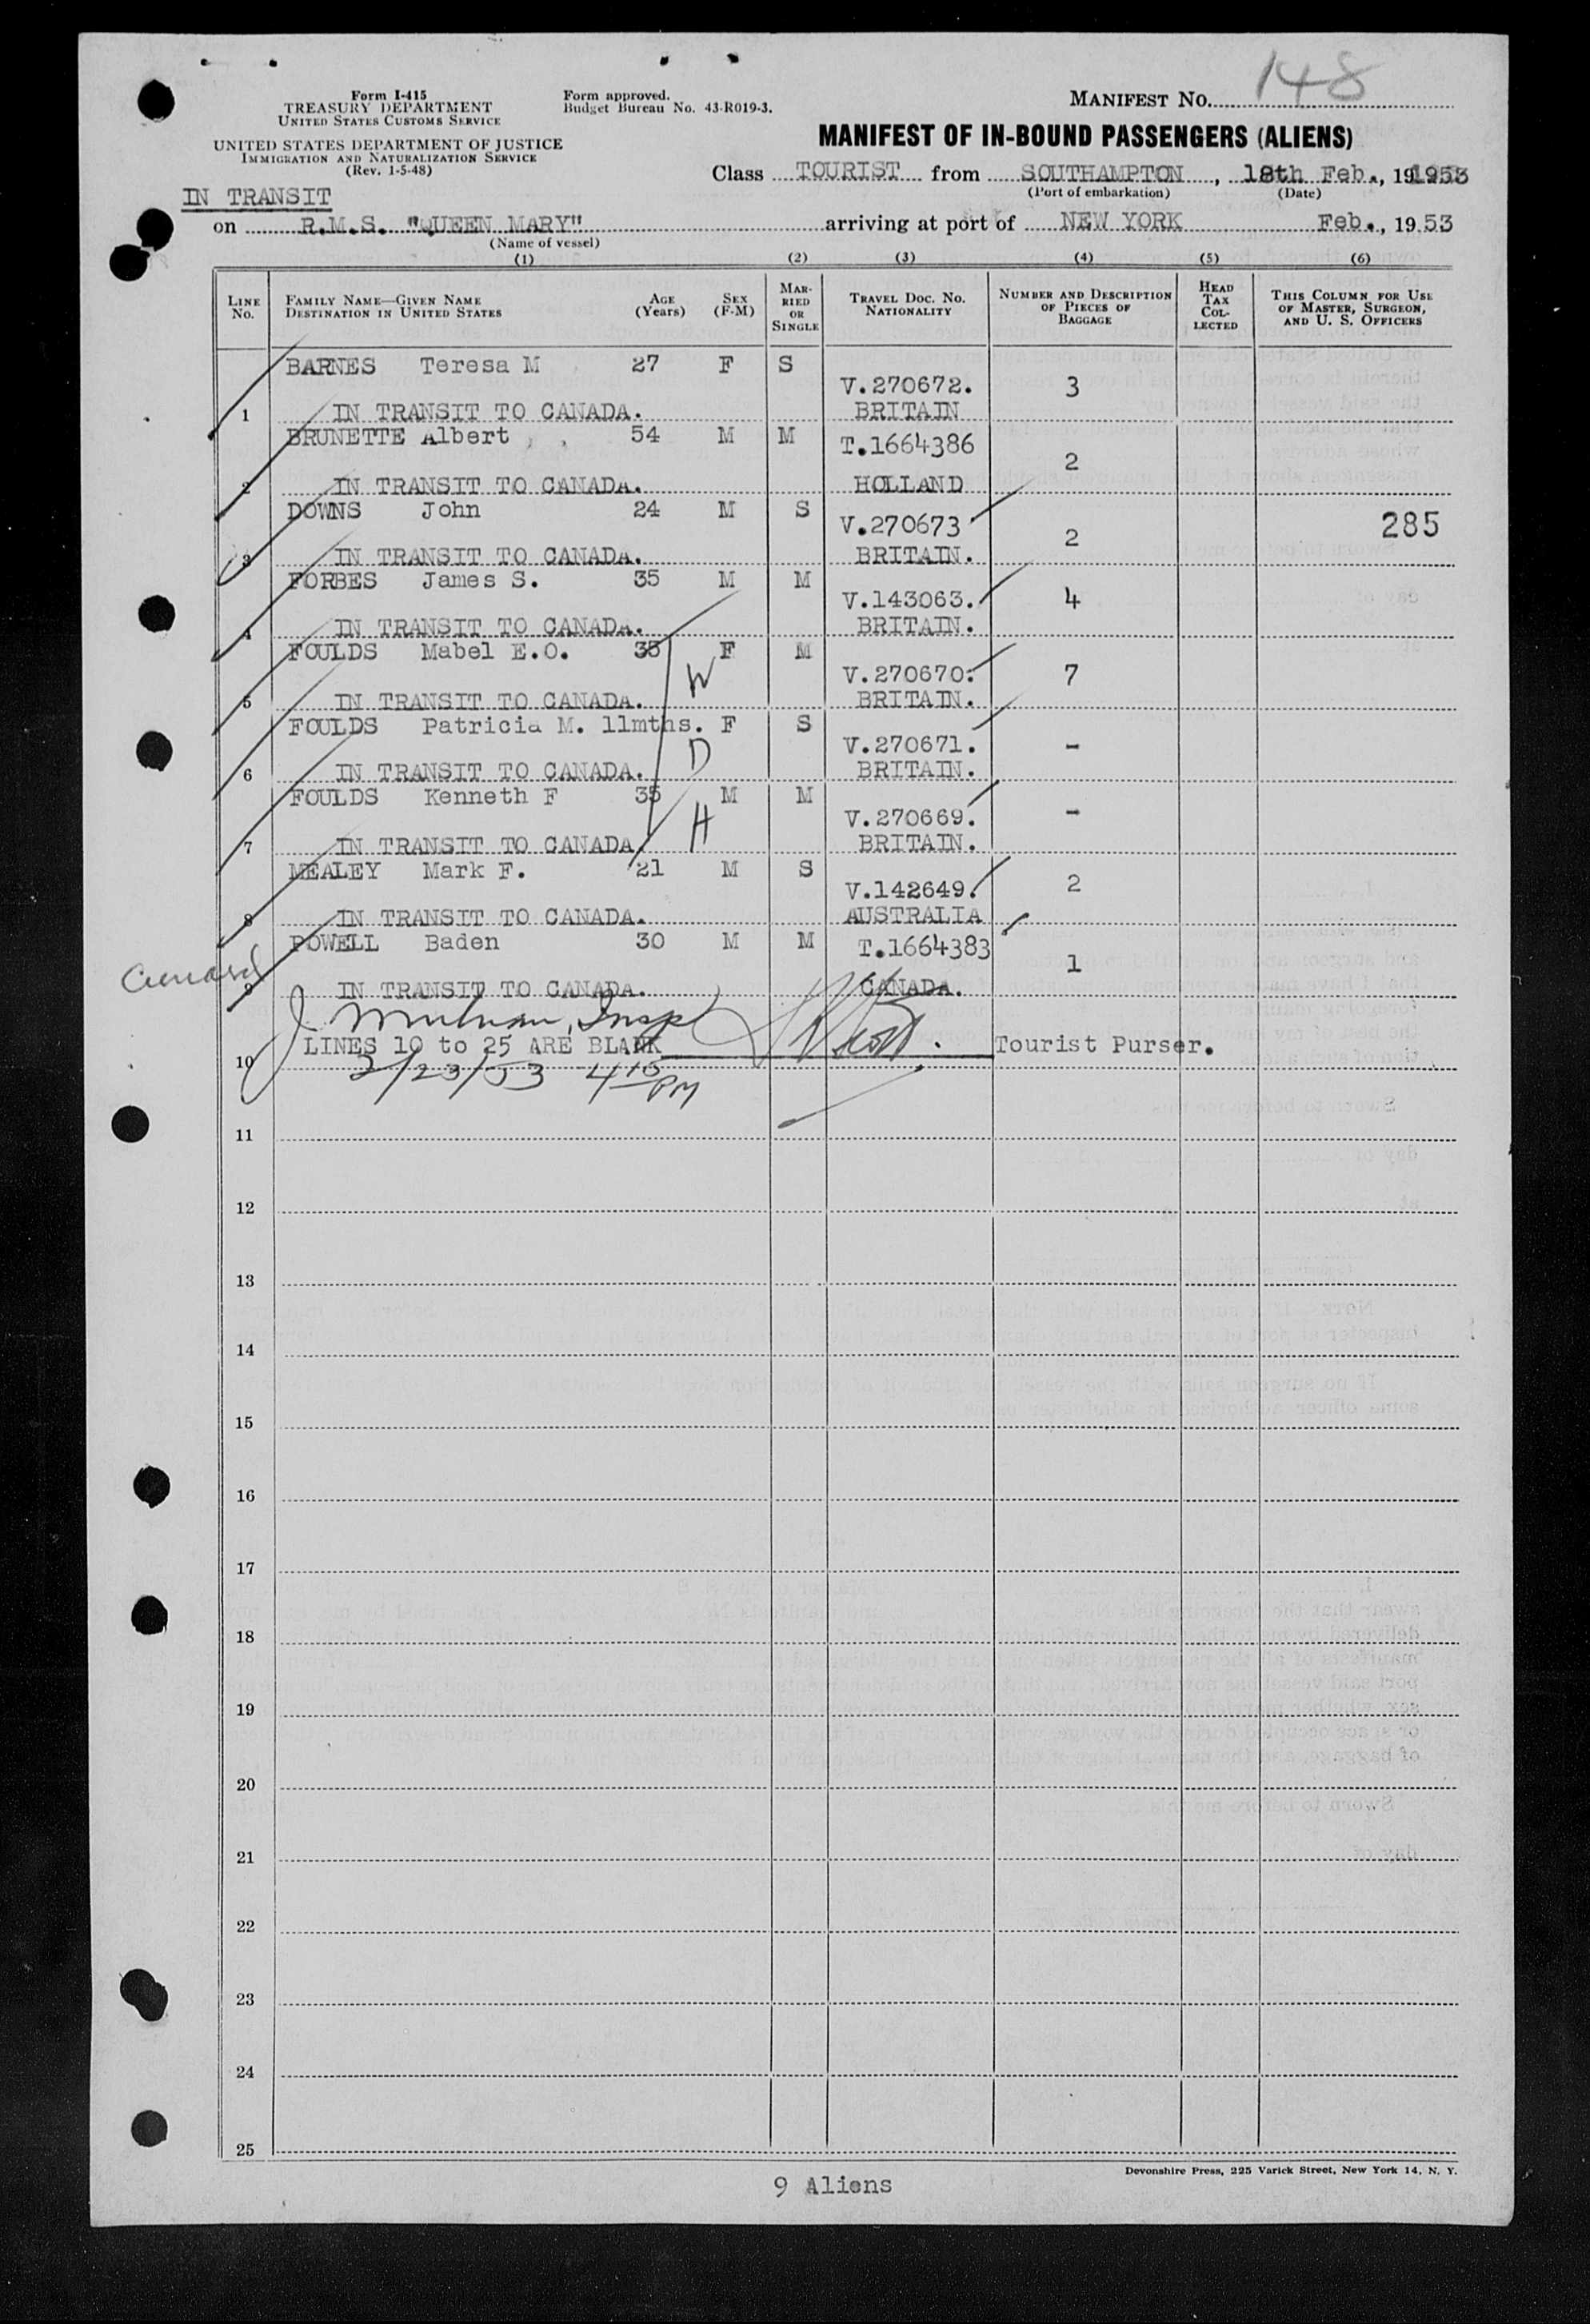 148
Form I-415
TREASURY DEPARTMENT
UNITED STATES CUSTOMS SERVICE
UNITED STATES DEPARTMENT OF JUSTICE
IMMIGRATION AND NATURALIZATION SERVICE
(Rev. 1-5-48)
Form approved.
Budget Bureau No. 43-R019-3.
MANIFEST NO.
MANIFEST OF IN-BOUND PASSENGERS (ALIENS)
Class TOURIST from SOUTHAMPTON, 18th Feb., 1953
(Port of embarkation) (Date)
IN TRANSIT
on R.M.S. "QUEEN MARY" arriving at port of NEW YORK Feb., 1953
(Name of vessel)
(1) (2) (3) (4) (5) (6)
LINE NO. FAMILY NAME—GIVEN NAME DESTINATION IN UNITED STATES AGE (Years) SEX (F-M) MARRIED OR SINGLE TRAVEL DOC. NO. NATIONALITY NUMBER AND DESCRIPTION OF PIECES OF BAGGAGE HEAD TAX COLLECTED THIS COLUMN FOR USE OF MASTER, SURGEON, AND U. S. OFFICERS
BARNES Teresa M 27 F S V.270672. 3
1 IN TRANSIT TO CANADA. BRITAIN
BRUNETTE Albert 54 M M T.1664386 2
2 IN TRANSIT TO CANADA. HOLLAND
DOWNS John 24 M S V.270673 2 285
3 IN TRANSIT TO CANADA. BRITAIN.
FORBES James S. 35 M M V.143063. 4
4 IN TRANSIT TO CANADA. BRITAIN.
FOULDS Mabel E.O. 35 F M V.270670. 7
W
5 IN TRANSIT TO CANADA. BRITAIN.
FOULDS Patricia M. 11mths. F S V.270671. -
D
6 IN TRANSIT TO CANADA. BRITAIN.
FOULDS Kenneth F 35 M M V.270669. -
H
7 IN TRANSIT TO CANADA. BRITAIN.
MEALEY Mark F. 21 M S V.142649. 2
8 IN TRANSIT TO CANADA. AUSTRALIA
POWELL Baden 30 M M T.1664383 1
Cunard
9 IN TRANSIT TO CANADA. CANADA.
Insp
LINES 10 to 25 ARE BLANK Tourist Purser.
10 2/23/53 4 15 PM
11
12
13
14
15
16
17
18
19
20
21
22
23
24
25
Devonshire Press, 225 Varick Street, New York 14, N. Y.
9 Aliens